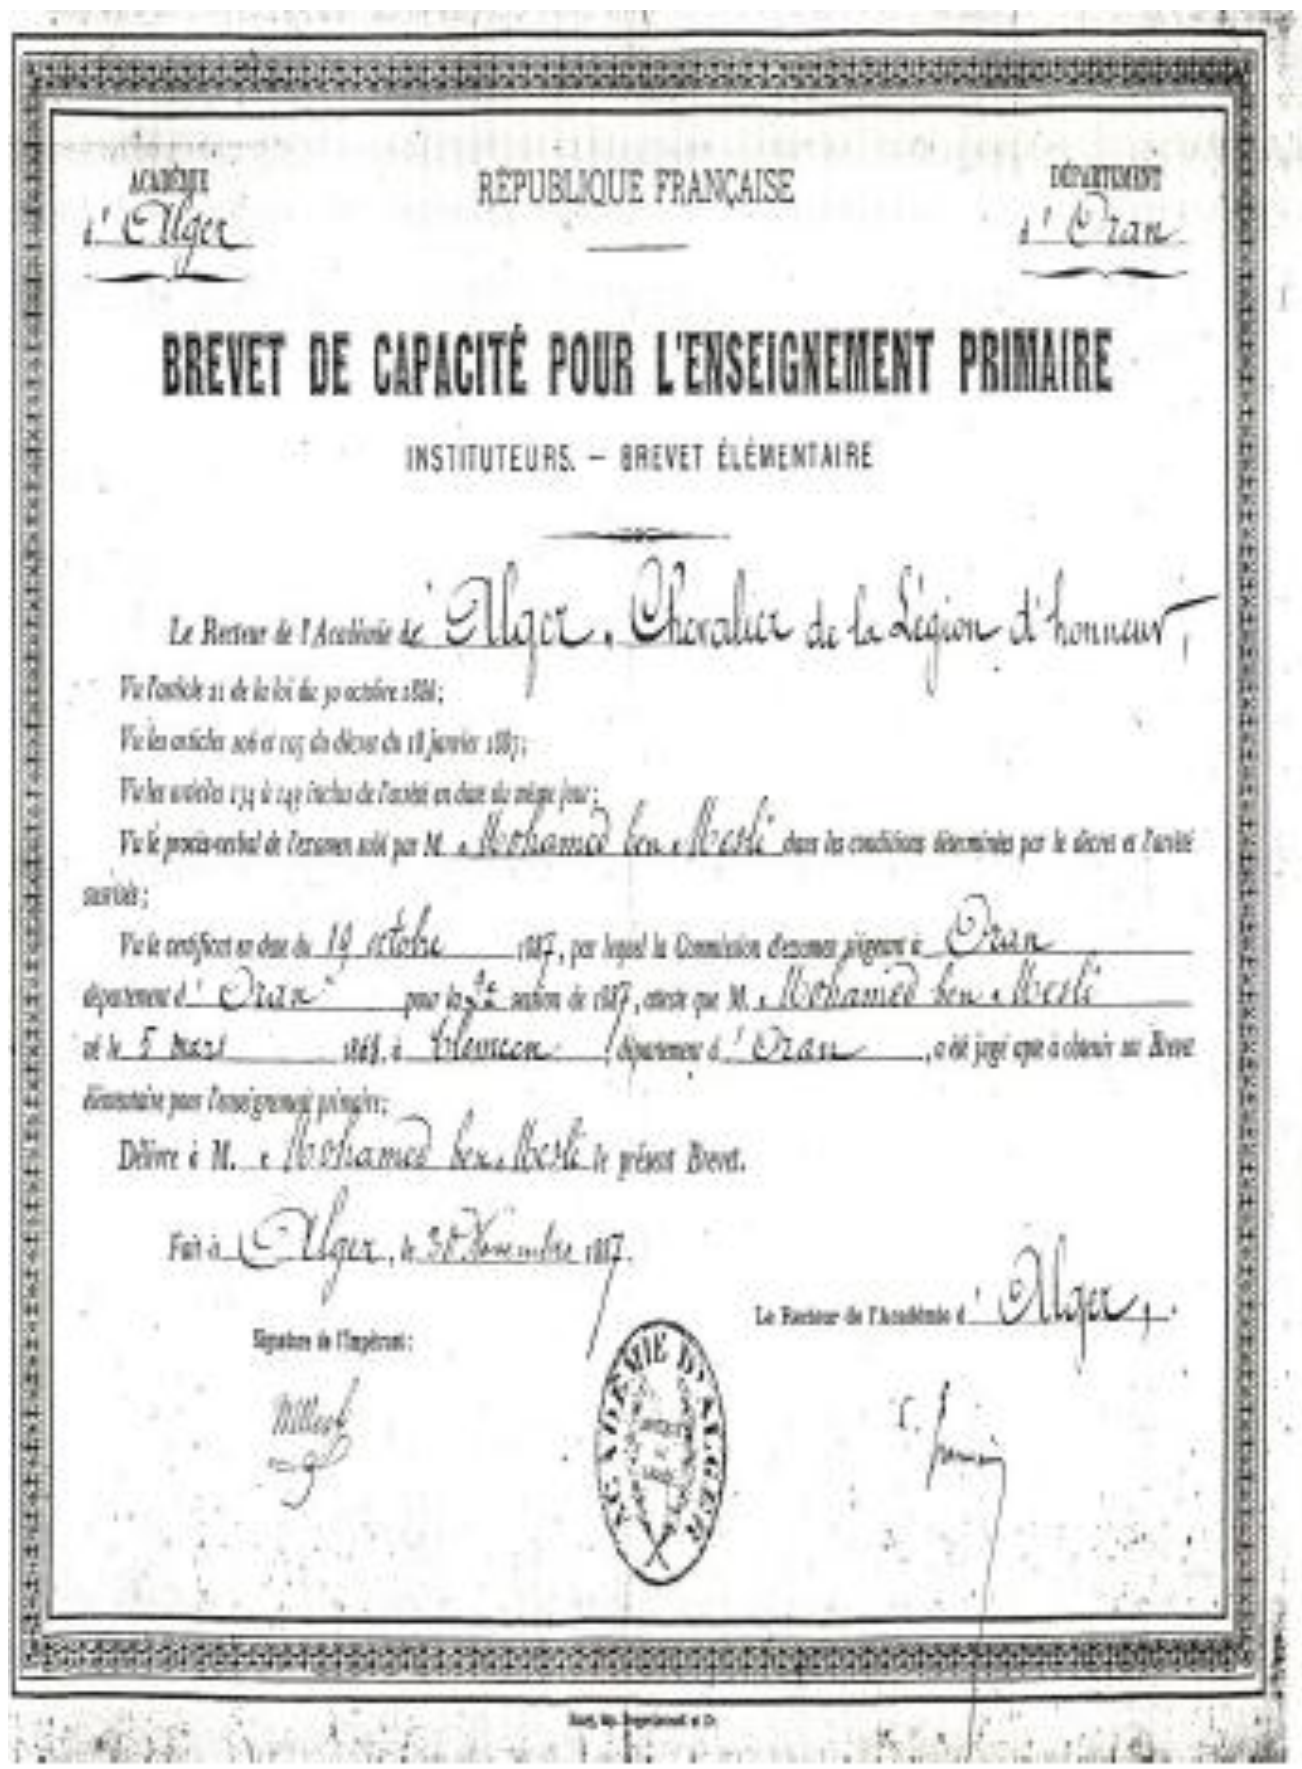 ACADÉMIE
d'Alger
RÉPUBLIQUE FRANÇAISE
DÉPARTEMENT
d'Oran
BREVET DE CAPACITÉ POUR L'ENSEIGNEMENT PRIMAIRE
INSTITUTEURS. — BREVET ÉLÉMENTAIRE
Le Recteur de l'Académie d'Alger, Chevalier de la Légion d'honneur,
Vu l'article 21 de la loi du 30 octobre 1886;
Vu les articles 106 et 107 du décret du 18 janvier 1887;
Vu les articles 134 à 149 inclus de l'arrêté en date du même jour;
Vu le procès-verbal de l'examen subi par M. Mohamed ben Mesli dans les conditions déterminées par le décret et l'arrêté
susvisés;
Vu le certificat en date du 19 octobre 1887, par lequel la Commission d'examen siégeant à Oran
département d'Oran pour la 2e session de 1887, atteste que M. Mohamed ben Mesli
né le 5 mars 1868, à Tlemcen département d'Oran, a été jugé apte à obtenir un Brevet
élémentaire pour l'enseignement primaire;
Délivre à M. Mohamed ben Mesli le présent Brevet.
Fait à Alger, le 30 Novembre 1887.
Le Recteur de l'Académie d'Alger,
Signature de l'Impétrant:
ACADÉMIE D'ALGER